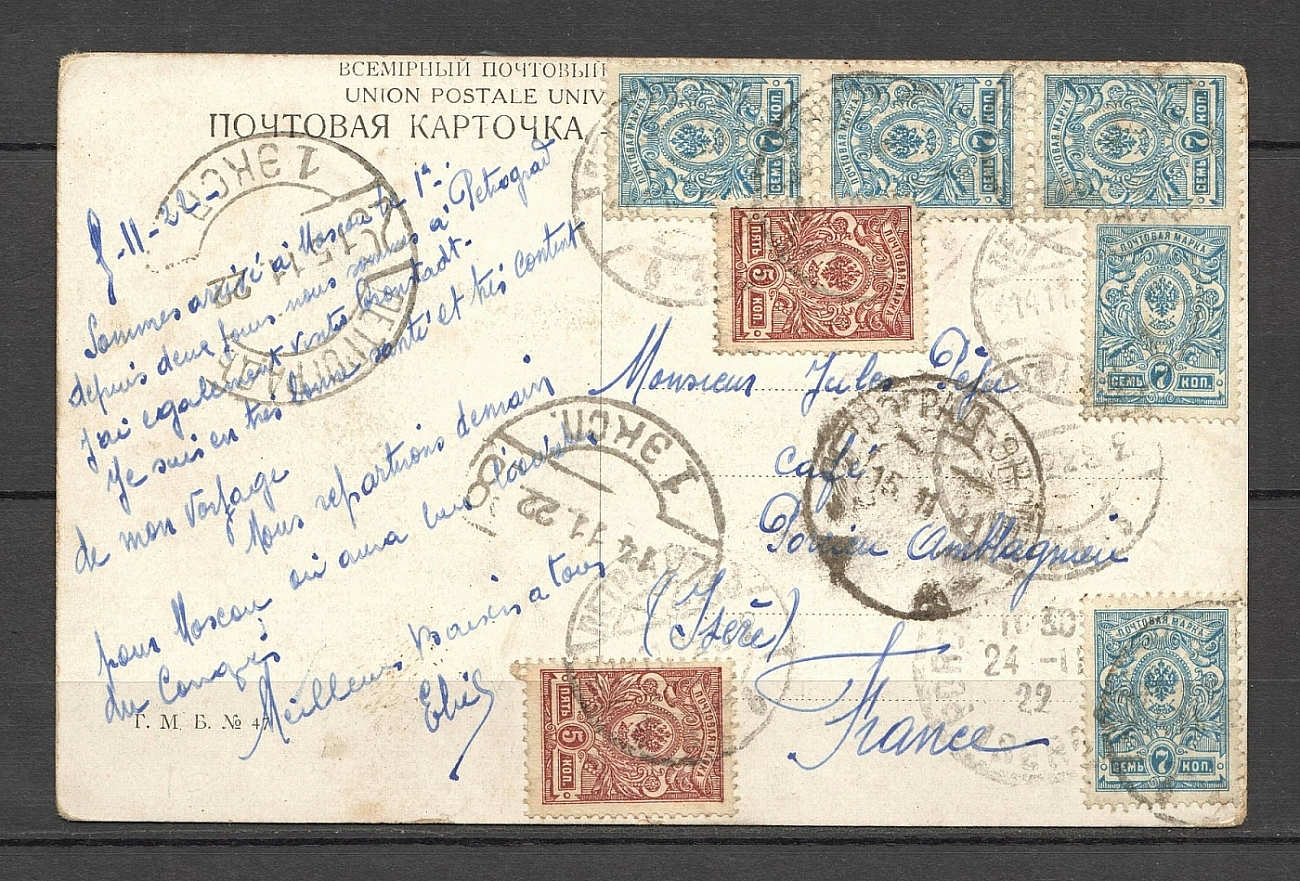 ВСЕМІРНЫЙ ПОЧТОВЫЙ
UNION POSTALE UNIV
ПОЧТОВАЯ КАРТОЧКА
ПОЧТОВАЯ МАРКА
7
СЕМЬ КОП.
ПОЧТОВАЯ МАРКА
7
СЕМЬ КОП.
ПОЧТОВАЯ МАРКА
7
СЕМЬ КОП.
ПОЧТОВАЯ МАРКА
СЕМЬ 7 КОП.
ПОЧТОВАЯ МАРКА
ПЯТЬ 5 КОП.
1 ЭКСП.
15 11 22
ПЕТРОГРАД
-11-22-
Sommes arrivé à Moscou le 1e-
depuis deux jours nous sommes à Petrograd
J'ai egalement visité Cronstadt-
Je suis en très bonne santé et très content
de mon voyage
Nous repartirons demain
pour Moscou où aura lieu
du Congrès
Meilleurs Baisers a tous
Monsieur Jules
Café
(Isère)
France
1 ЭКСП.
14 11 22
ПЕТРОГРАД
15 11
24 - 11
22
ПОЧТОВАЯ МАРКА
СЕМЬ 7 КОП.
ПОЧТОВАЯ МАРКА
ПЯТЬ 5 КОП.
Г. М. Б. № 4